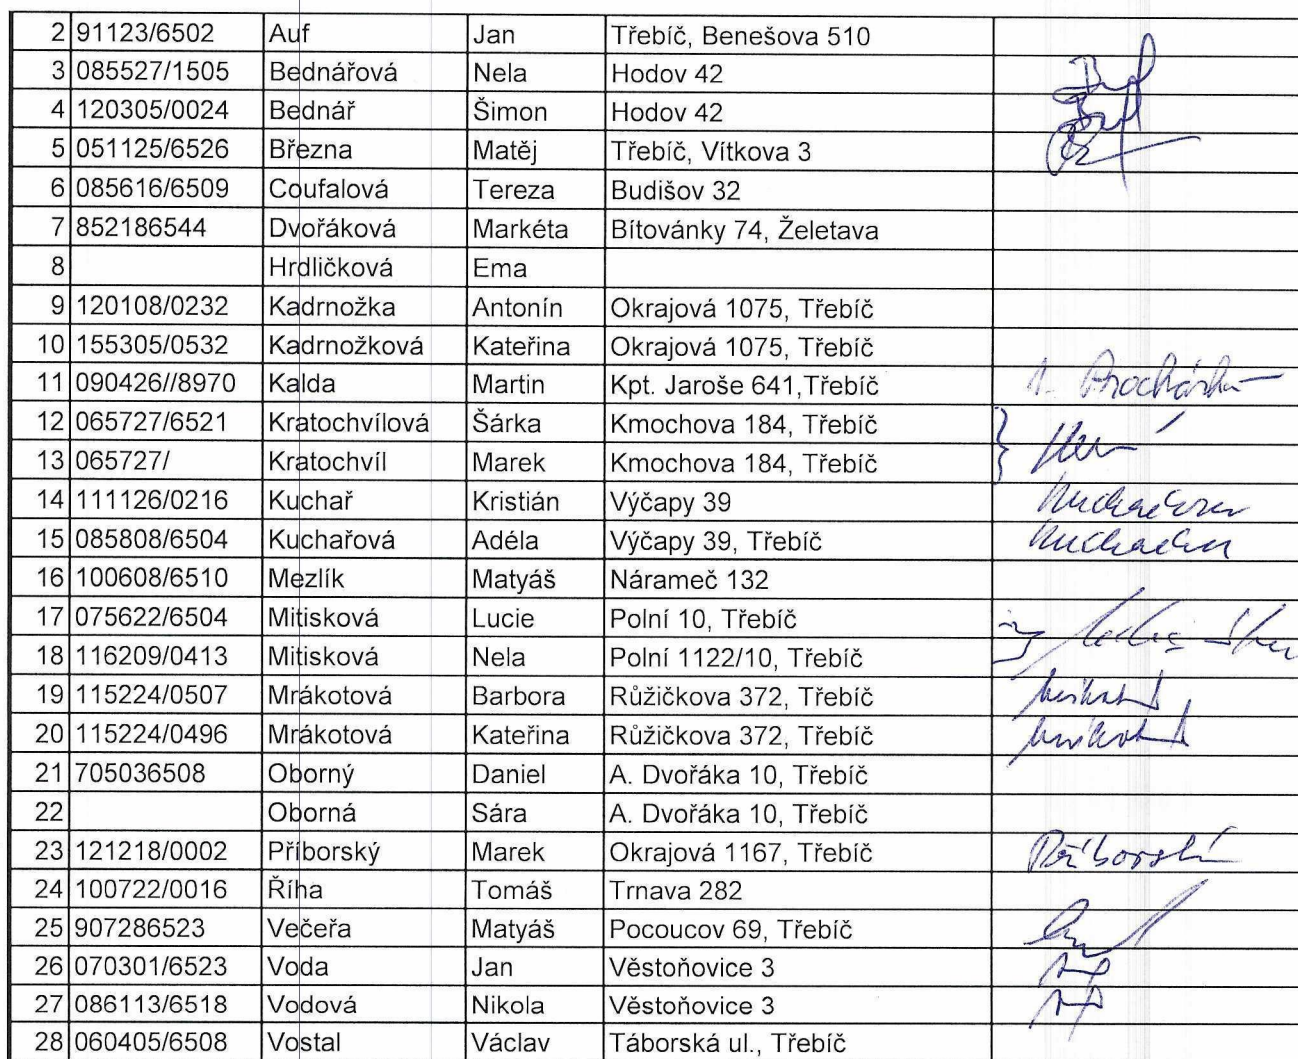 2 91123/6502 Auf Jan Třebíč, Benešova 510
3 085527/1505 Bednářová Nela Hodov 42
4 120305/0024 Bednář Šimon Hodov 42
5 051125/6526 Března Matěj Třebíč, Vítkova 3
6 085616/6509 Coufalová Tereza Budišov 32
7 852186544 Dvořáková Markéta Bítovánky 74, Želetava
8 Hrdličková Ema
9 120108/0232 Kadrnožka Antonín Okrajová 1075, Třebíč
10 155305/0532 Kadrnožková Kateřina Okrajová 1075, Třebíč
11 090426//8970 Kalda Martin Kpt. Jaroše 641,Třebíč
12 065727/6521 Kratochvílová Šárka Kmochova 184, Třebíč
13 065727/ Kratochvíl Marek Kmochova 184, Třebíč
14 111126/0216 Kuchař Kristián Výčapy 39
15 085808/6504 Kuchařová Adéla Výčapy 39, Třebíč
16 100608/6510 Mezlík Matyáš Nárameč 132
17 075622/6504 Mitisková Lucie Polní 10, Třebíč
18 116209/0413 Mitisková Nela Polní 1122/10, Třebíč
19 115224/0507 Mrákotová Barbora Růžičkova 372, Třebíč
20 115224/0496 Mrákotová Kateřina Růžičkova 372, Třebíč
21 705036508 Oborný Daniel A. Dvořáka 10, Třebíč
22 Oborná Sára A. Dvořáka 10, Třebíč
23 121218/0002 Příborský Marek Okrajová 1167, Třebíč
24 100722/0016 Říha Tomáš Trnava 282
25 907286523 Večeřa Matyáš Pocoucov 69, Třebíč
26 070301/6523 Voda Jan Věstoňovice 3
27 086113/6518 Vodová Nikola Věstoňovice 3
28 060405/6508 Vostal Václav Táborská ul., Třebíč